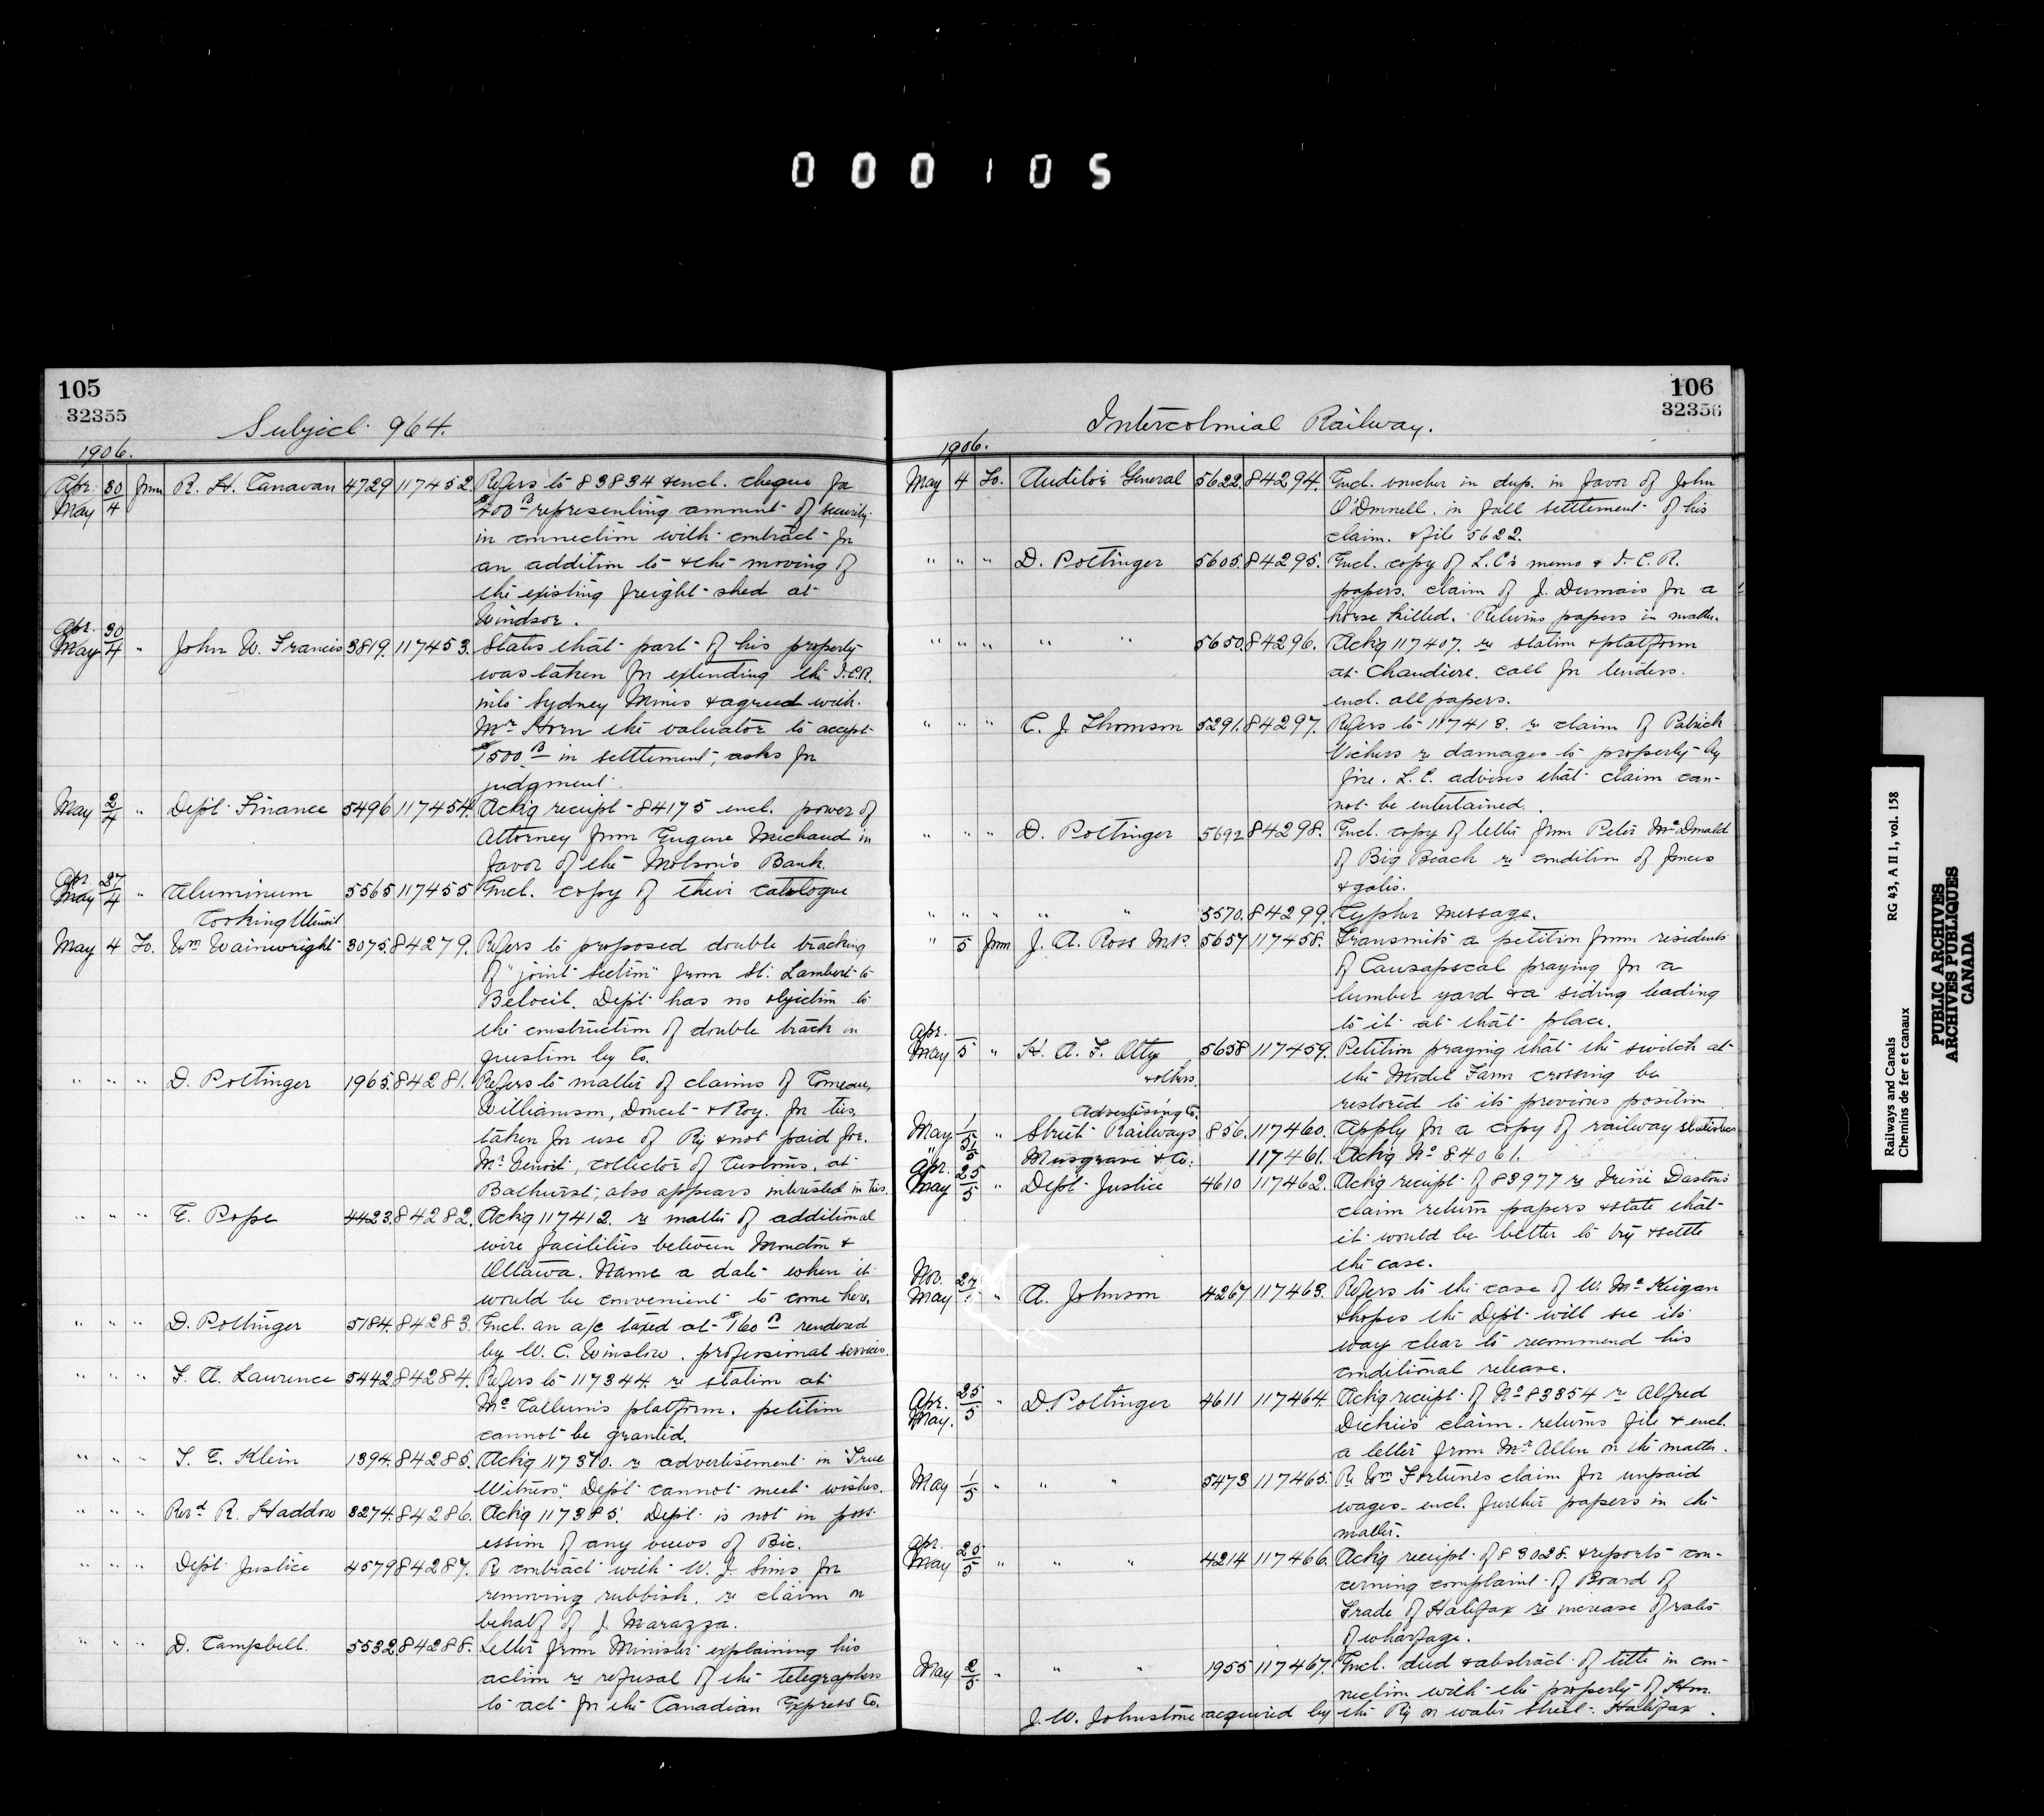 000105
105
32355
Subject 964.
1906.
Apr. 30 May 4 from R. H. Canavan 4729 117452. Refers to 83834 & encl. cheque for
$200 representing amount of security
in connection with contract for
an addition to & the moving of
the existing freight shed at
Windsor.
Apr. 30 May 4 " John W. Francis 3819. 117453. States that part of his property
was taken for extending the I.C.R.
into Sydney Mines & agreed with
Mr Horn the valuator to accept
$1500 in settlement, asks for
judgment.
May 2/4 " Dept Finance 5496 117454. Ackg receipt 84175 encl. power of
Attorney from Eugene Michaud in
favor of the Molson's Bank.
Apr. 27 May 4 " Aluminum 5565 117455 Encl. copy of their catalogue
Cooking Utensil
May 4 To. Wm Wainwright 3075. 84279. Refers to proposed double tracking
of "joint section" from St. Lambert to
Beloeil. Dept has no objection to
the construction of double track in
question by Co.
" " " D. Pottinger 1965. 84281. Refers to matter of claims of Comeau,
Williamson, Doucet & Roy. for ties,
taken for use of Ry & not paid for.
Mr Venoit, collector of Customs, at
Bathurst, also appears interested in ties.
" " " E. Pope 4423. 84282. Ackg 117412. re matter of additional
wire facilities between Moncton &
Ottawa. Name a date when it
would be convenient to come here.
" " " D. Pottinger 5184. 84283. Encl. an a/c taxed at $160 rendered
by W. C. Winslow. professional services.
" " " F. A. Lawrence 5442 84284. Refers to 117344. re station at
McCallum's platform. petition
cannot be granted.
" " " T. E. Klein 1394. 84285. Ackg 117370. re advertisement in "True
Witness" Dept cannot meet wishes.
" " " Revd R. Haddow 3274. 84286. Ackg 117385. Dept is not in poss-
ession of any views of Bic.
" " " Dept Justice 4579 84287. Re contract with W. J. Sims for
removing rubbish. re claim on
behalf of J. Marazza.
" " " D. Campbell. 5532 84288. Letter from Minister explaining his
action re refusal of the telegraphers
to act for the Canadian Express Co.
106
32356
Intercolonial Railway.
1906.
May 4 To. Auditor General 5622. 84294. Encl. voucher in dup. in favor of John
O'Donnell. in full settlement of his
claim. & file 5622.
" " " D. Pottinger 5605. 84295. Encl. copy of L.C's memo & I.C.R.
papers. claim of J. Dumais for a
horse killed. Returns papers in matter.
" " " " " 5650. 84296. Ackg 117407. re station & platform
at Chaudiere. call for tenders.
encl. all papers.
" " " C. J. Thomson 5291. 84297. Refers to 117413. re claim of Patrick
Vickers re damages to property by
fire. L.C. advises that claim can-
not be entertained.
" " " D. Pottinger 5692 84298. Encl. copy of letter from Peter McDonald
of Big Beach re condition of fences
& gates.
" " " " " 5570. 84299. Cypher Message.
" 5 from J. A. Ross M.P. 5657 117458. Transmits a petition from residents
of Causapscal praying for a
lumber yard & a siding leading
to it at that place.
Apr. May 5 " H. A. F. Otty 5658 117459. Petition praying that the switch at
& others. the Model Farm crossing be
restored to its previous position
Advertising Co.
May 1/5 " Street Railways 856. 117460. Apply for a copy of railway statistics
" 5 Musgrave & Co. 117461. Ackg No 84061.
Apr. 25 May 5 " Dept Justice 4610 117462. Ackg receipt of 83977 re Irené Daston's
claim return papers & state that
it would be better to try & settle
the case.
Nov. 27 May " A. Johnson 4267 117463. Refers to the case of W. McKeigan
& hopes the Dept will see its
way clear to recommend his
conditional release.
Apr. 25 May. 5 " D. Pottinger 4611 117464. Ackg receipt of No 83354 re Alfred
Dickie's claim. returns file & encl.
a letter from Mr Allen on the matter.
May 1/5 " " " 5473 117465. Re Wm Fortune's claim for unpaid
wages. encl. further papers in the
matter.
Apr. 25 May 5 " " " 4214 117466. Ackg receipt of 83028. & reports con-
cerning complaint of Board of
Trade of Halifax re increase of rates
of wharfage.
May 2/5 " " " 1955 117467. Encl. deed & abstract of title in con-
nection with the property of Hon.
J. W. Johnstone acquired by the Ry on water Street: Halifax.
Railways and Canals
Chemins de fer et canaux
RG 43, A II 1, vol. 158
PUBLIC ARCHIVES
ARCHIVES PUBLIQUES
CANADA